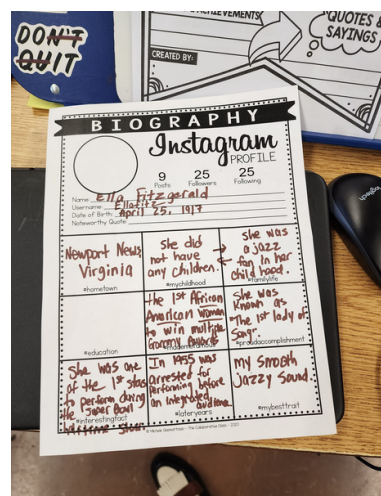 DON'T
QUIT
ACHIEVEMENTS
QUOTES &
SAYINGS
CREATED BY:
BIOGRAPHY
Instagram
PROFILE
9 25 25
Posts Followers Following
Name Ella Fitzgerald
Username Ellafitz
Date of Birth April 25, 1917
Noteworthy Quote
Newport News,
Virginia
#hometown
She did
not have
any children.
#mychildhood
She was
a jazz
fan in her
child hood.
#familylife
#education
the 1st African
American woman
to win multiple
Grammy Awards
She was
known as
"The 1st lady of
Song".
#proudaccomplishment
She was one
of the 1st stars
to perform during
the Super Bowl
halftime show
#interestingfact
In 1955 was
arrested for
performing before
an integrated
audience
#lateryears
my smooth
Jazzy Sound.
#mybesttrait
logitech